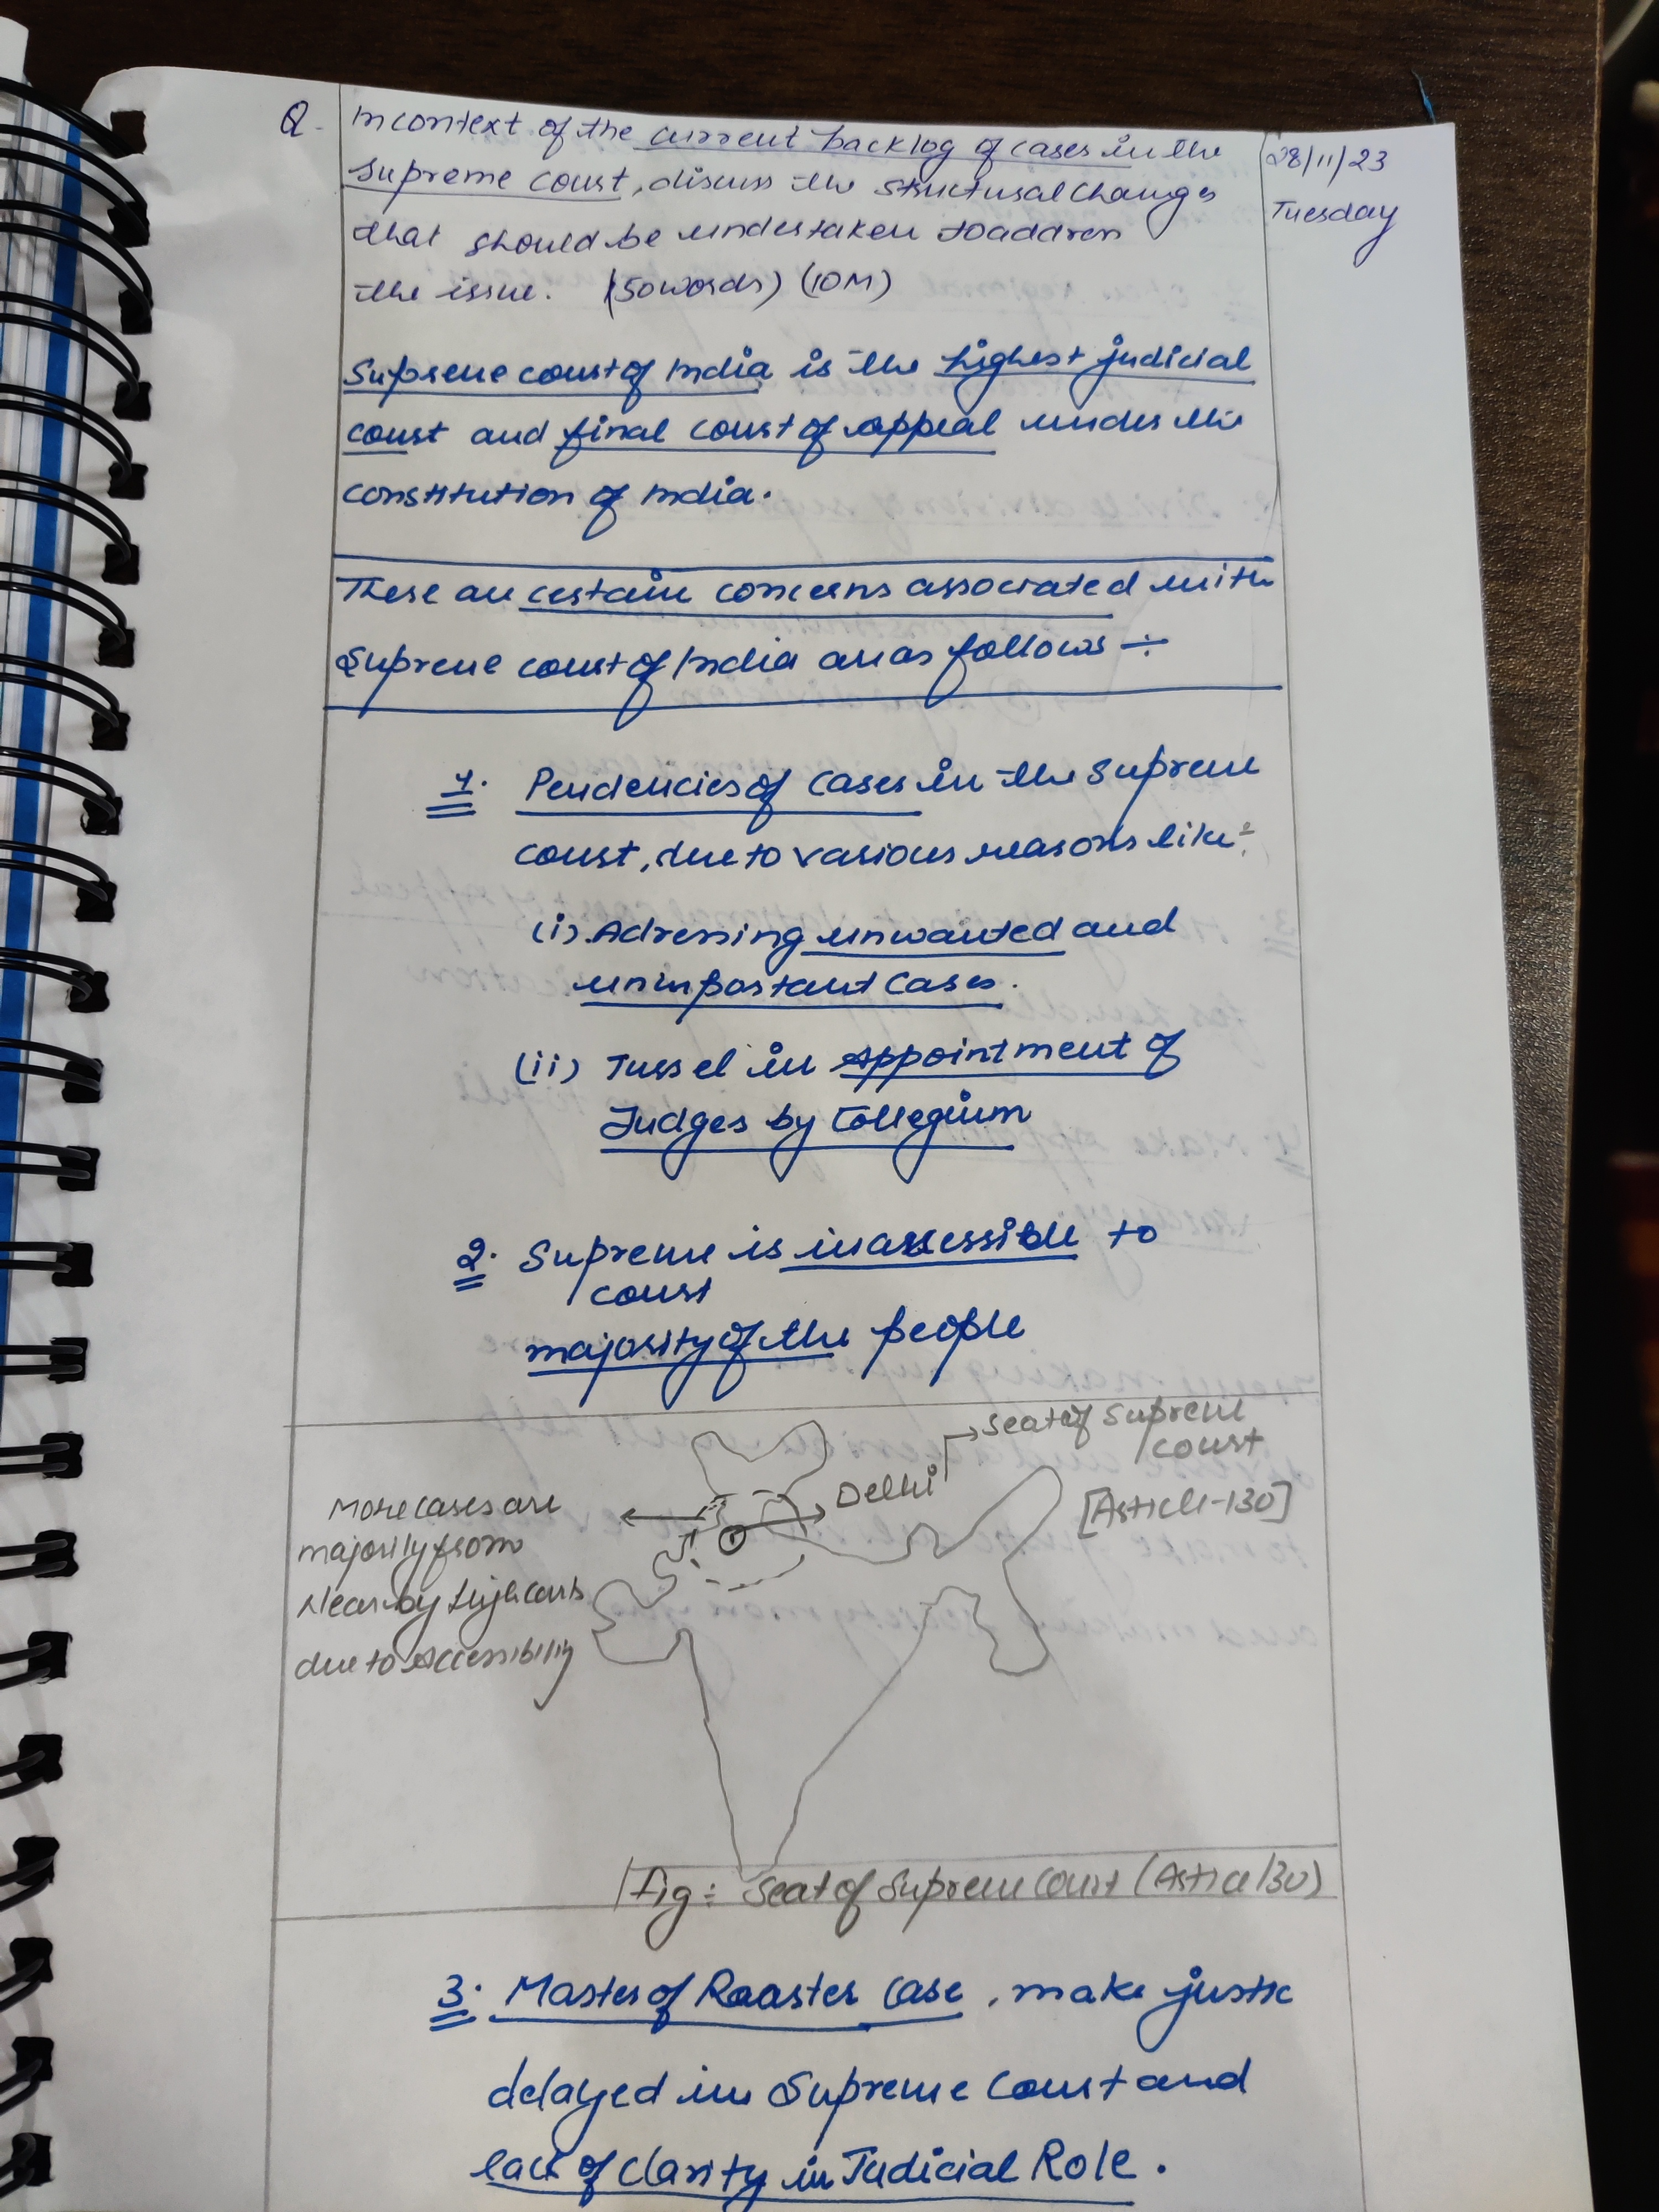 Q. In context of the current backlog of cases in the
Supreme Court, discuss the structural changes
that should be undertaken to address
the issue. (150 words) (10M)
28/11/23
Tuesday
Supreme court of India is the highest judicial
court and final court of appeal under the
constitution of India.
These are certain concerns associated with
Supreme court of India are as follows ÷
1. Pendencies of cases in the Supreme
court, due to various reasons like ÷
(i). Adressing unwanted and
unimportant cases.
(ii) Tussel in Appointment of
Judges by Collegium
2. Supreme is inassessible to
court
majority of the people
Seat of Supreme
court
Delhi
[Article-130]
More cases are
majority from
Nearby High Courts
due to Accessibility
Fig ÷ Seat of Supreme Court (Article 130)
3. Master of Roaster Case, make justic
delayed in Supreme Court and
lack of clarity in Judicial Role.